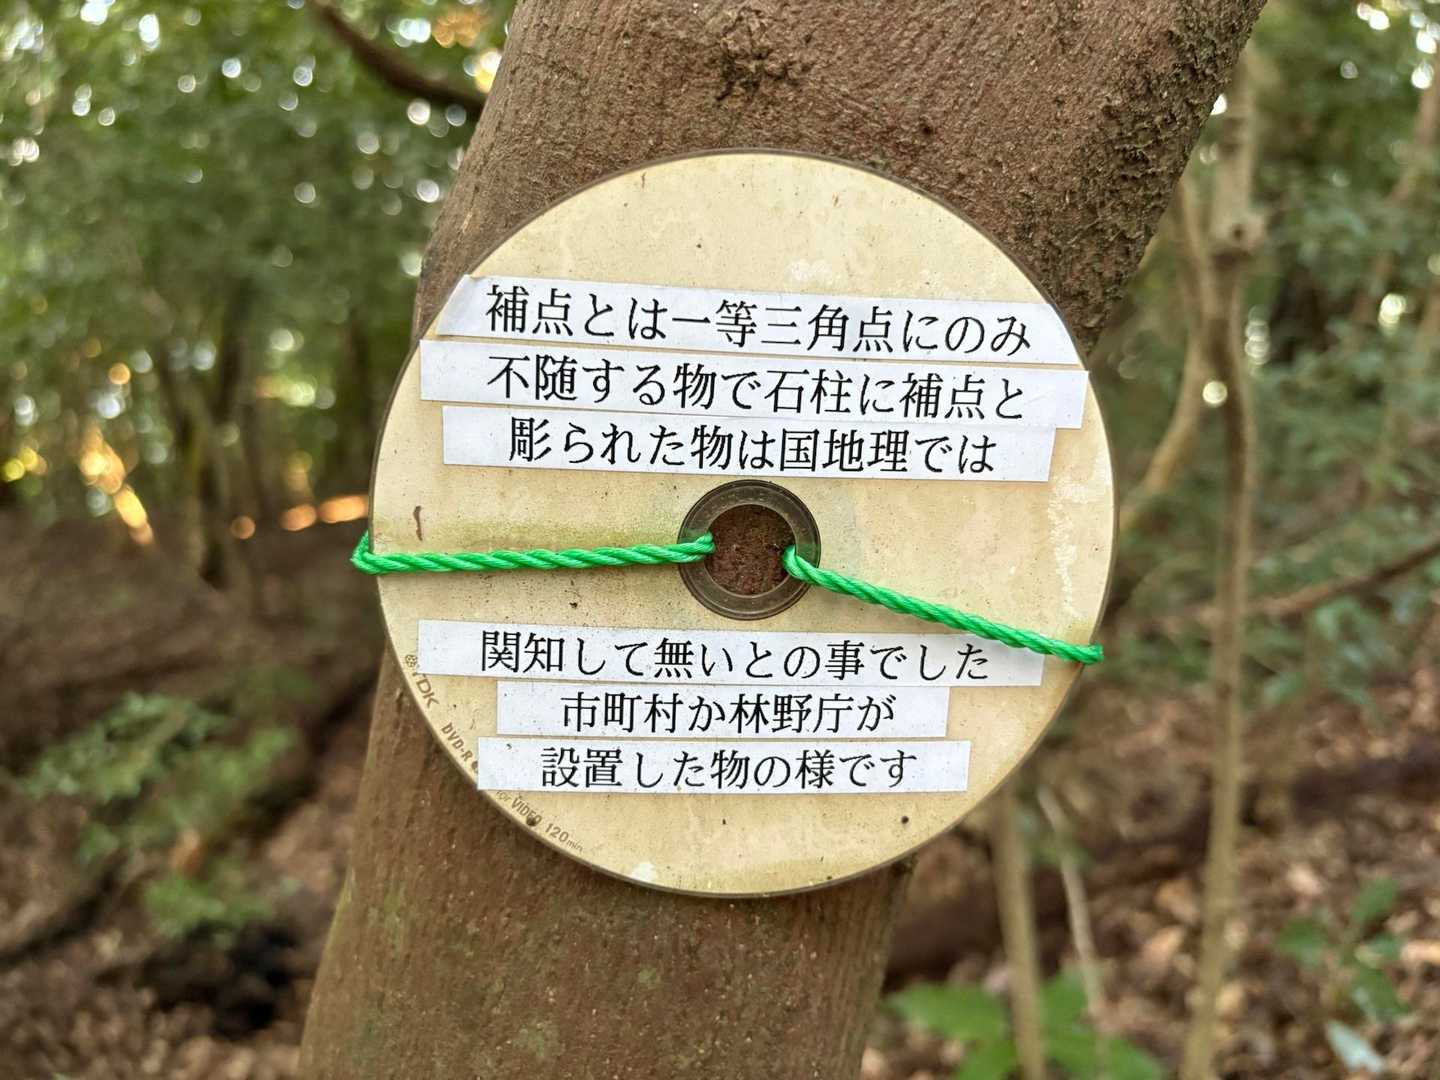 補点とは一等三角点にのみ
不随する物で石柱に補点と
彫られた物は国地理では
関知して無いとの事でした
市町村か林野庁が
設置した物の様です
TDK
DVD-R
for VIDEO 120min